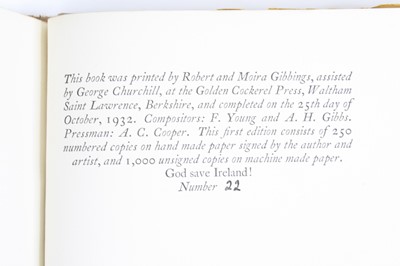 This book was printed by Robert and Moira Gibbings, assisted
by George Churchill, at the Golden Cockerel Press, Waltham
Saint Lawrence, Berkshire, and completed on the 25th day of
October, 1932. Compositors: F. Young and A. H. Gibbs.
Pressman: A. C. Cooper. This first edition consists of 250
numbered copies on hand made paper signed by the author and
artist, and 1,000 unsigned copies on machine made paper.
God save Ireland!
Number 22